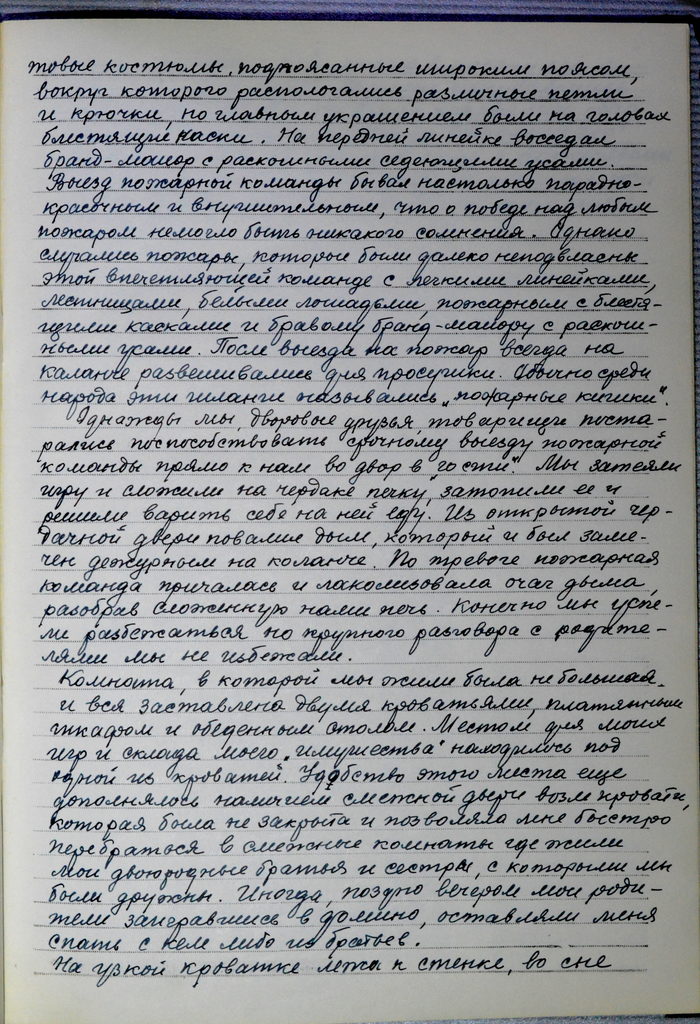 товые костюмы, подпоясанные широким поясом,
вокруг которого распологались различные петли
и крючки, но главным украшением были на головах
блестящие каски. На передней линейке восседал
бранд-майор с раскошными седеющими усами.
Выезд пожарной команды бывал настолько парадно-
красочным и внушительным, что о победе над любым
пожаром немогло быть никакого сомнения. Однако
случались пожары, которые были далеко неподвласны
этой впечетляющей команде с легкими линейками,
лестницами, белыми лошадьми, пожарным с блестя-
щими касками и бравому бранд-майору с раскош-
ными усами. После выезда на пожар всегда на
каланче развешивались для просушки. Обычно среди
народа эти шланги назывались „пожарные кишки".
Однажды мы, дворовые друзья, товарищи поста-
рались поспособствовать срочному выезду пожарной
команды прямо к нам во двор в гости". Мы затеяли
игру и сложили на чердаке печку, затопили ее и
решили варить себе на ней еду. Из открытой чер-
дачной двери повалил дым, который и был заме-
чен дежурным на коланче. По тревоге пожарная
команда примчалась и лаколизовала очаг дыма,
разобрав сложенную нами печь. Конечно мы успе-
ли разбежаться но крупного разговора с родите-
лями мы не избежали.
Комната, в которой мы жили была не большая
и вся заставлена двумя кроватьями, платяным
шкафом и обеденным столом. Местом для моих
игр и склада моего „имущества" находилось под
одной из кроватей. Удобство этого места еще
дополнялось наличием смежной двери возле кровати,
которая была не закрыта и позволяла мне быстро
перебраться в смежные комнаты где жили
мои двоюродные братья и сестры, с которыми мы
были дружны. Иногда, поздно вечером мои роди-
тели заигравшись в домино, оставляли меня
спать с кем либо из братьев.
На узкой кроватке лежа к стенке, во сне